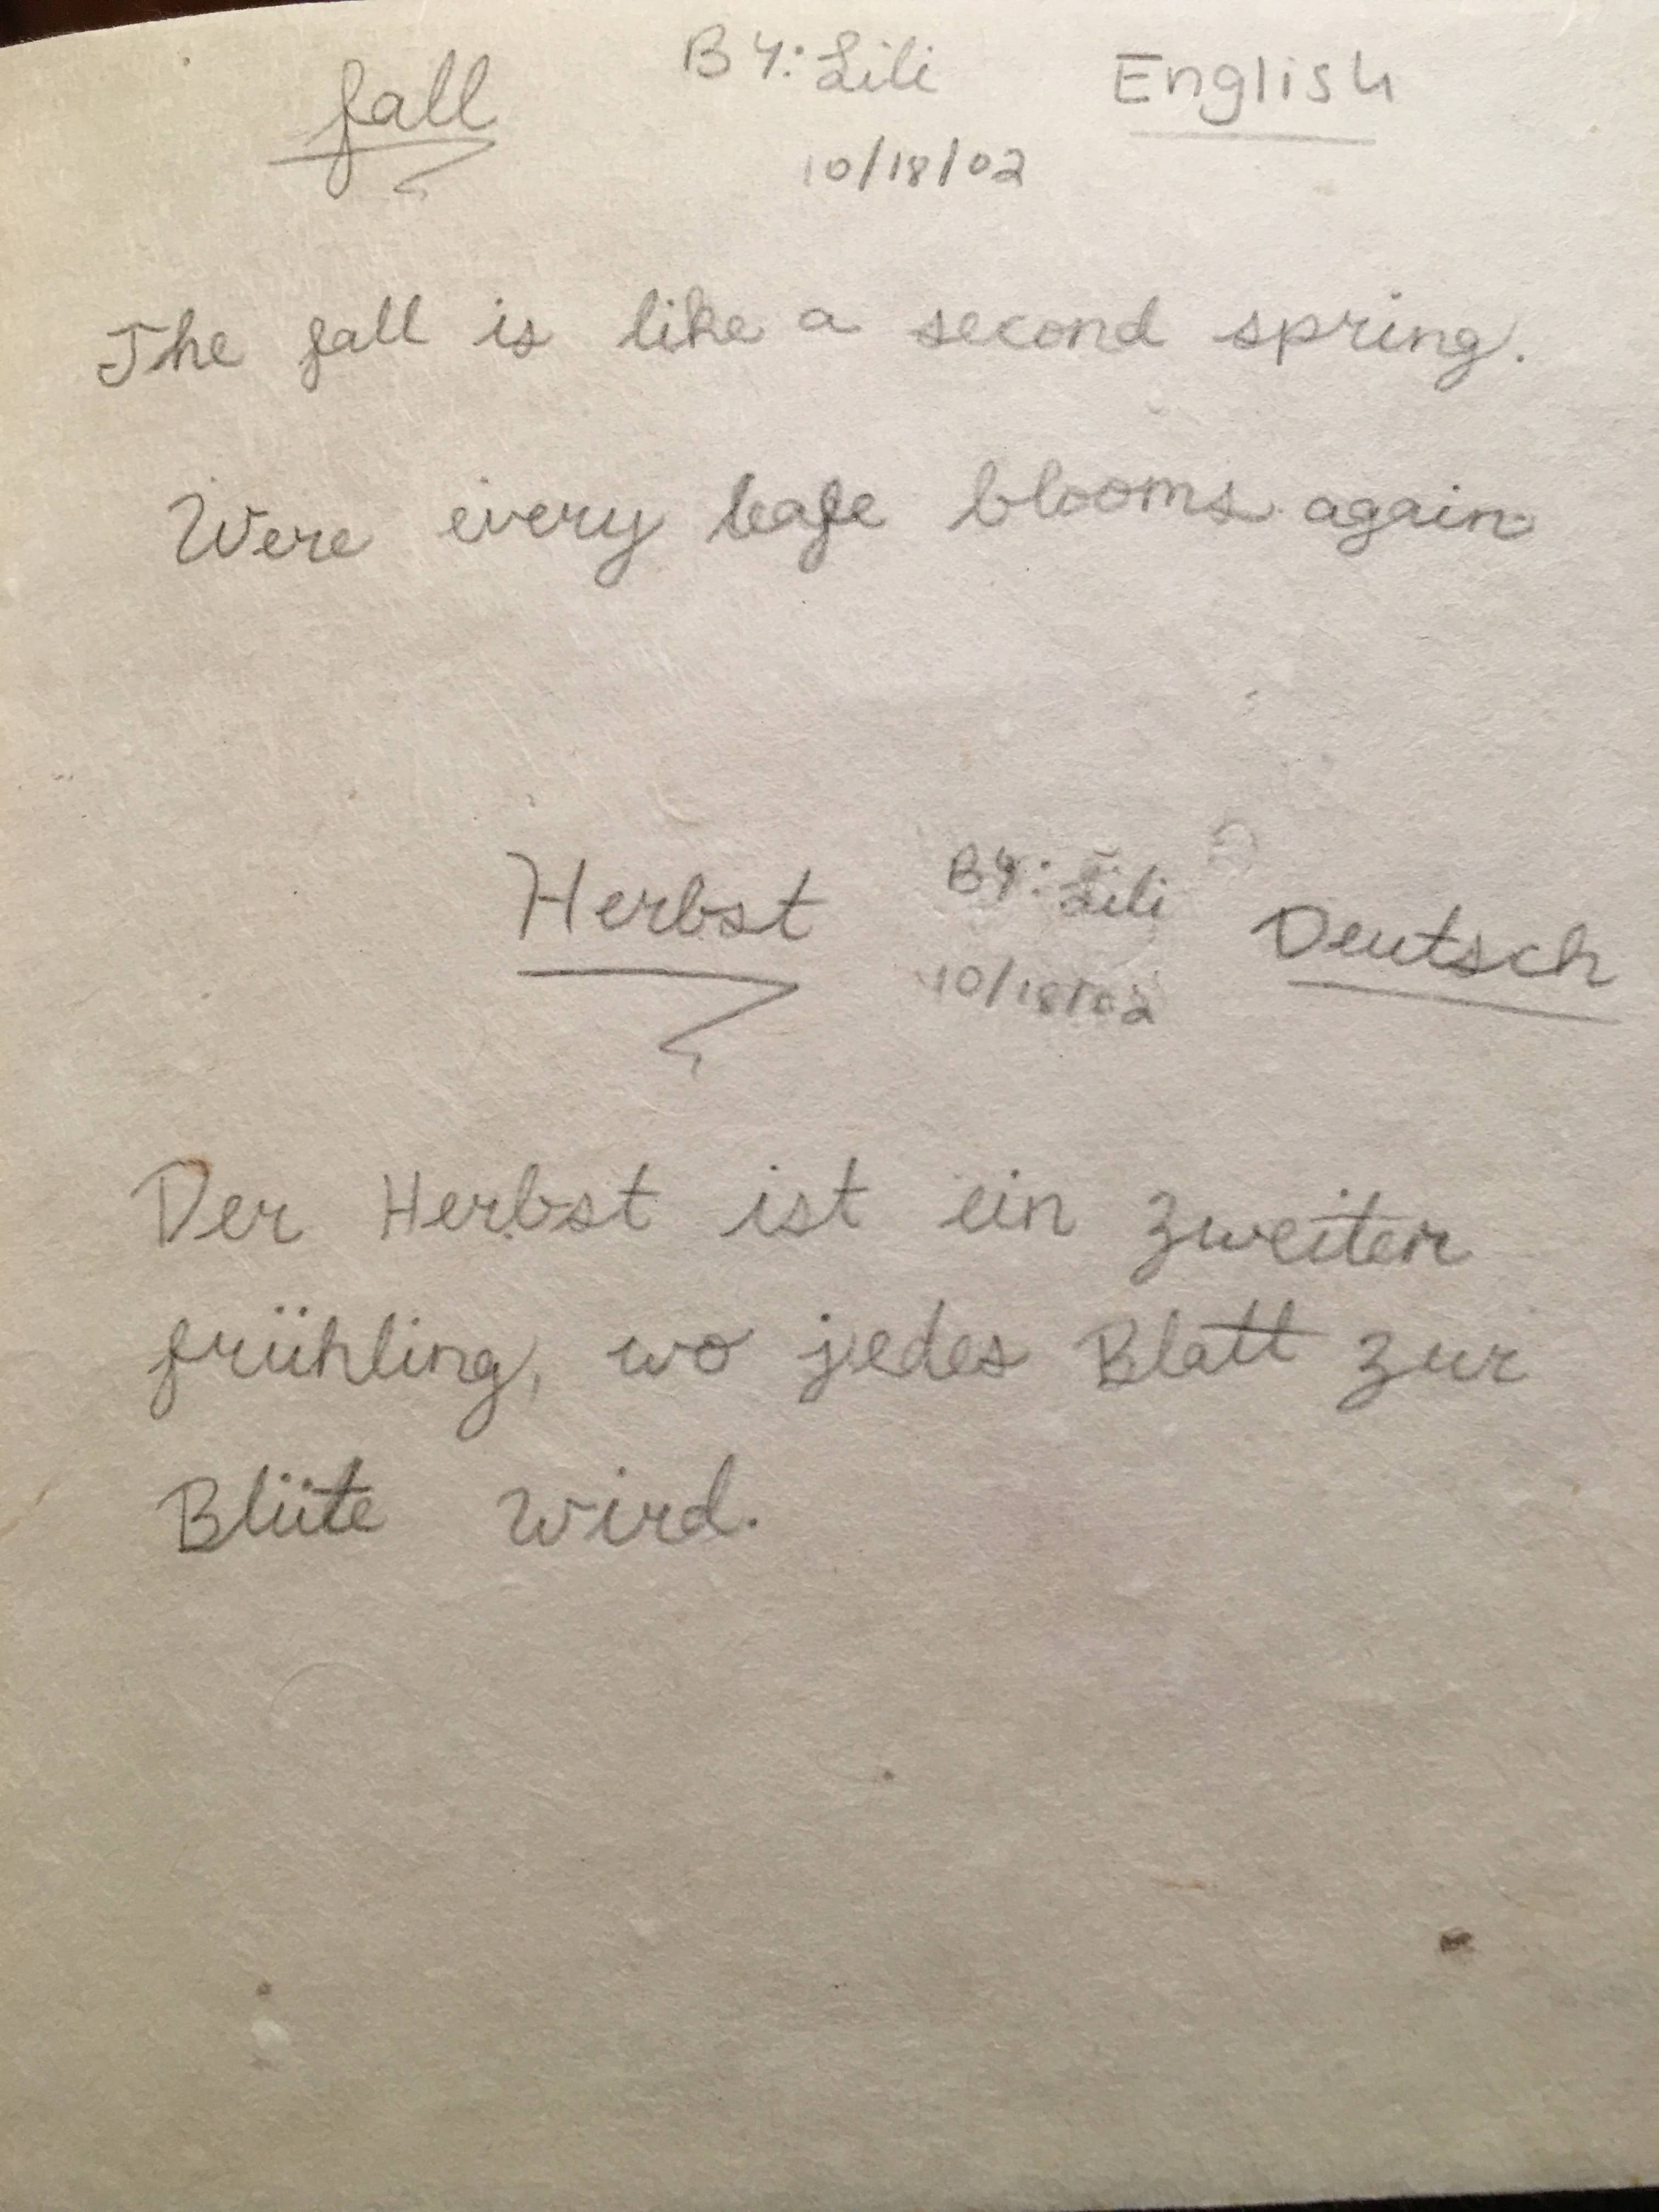 fall By: Lili English
10/18/02
The fall is like a second spring.
Were every leafe blooms again
Herbst By: Lili Deutsch
10/18/02
Der Herbst ist ein zweiter
frühling, wo jedes Blatt zur
Blüte wird.